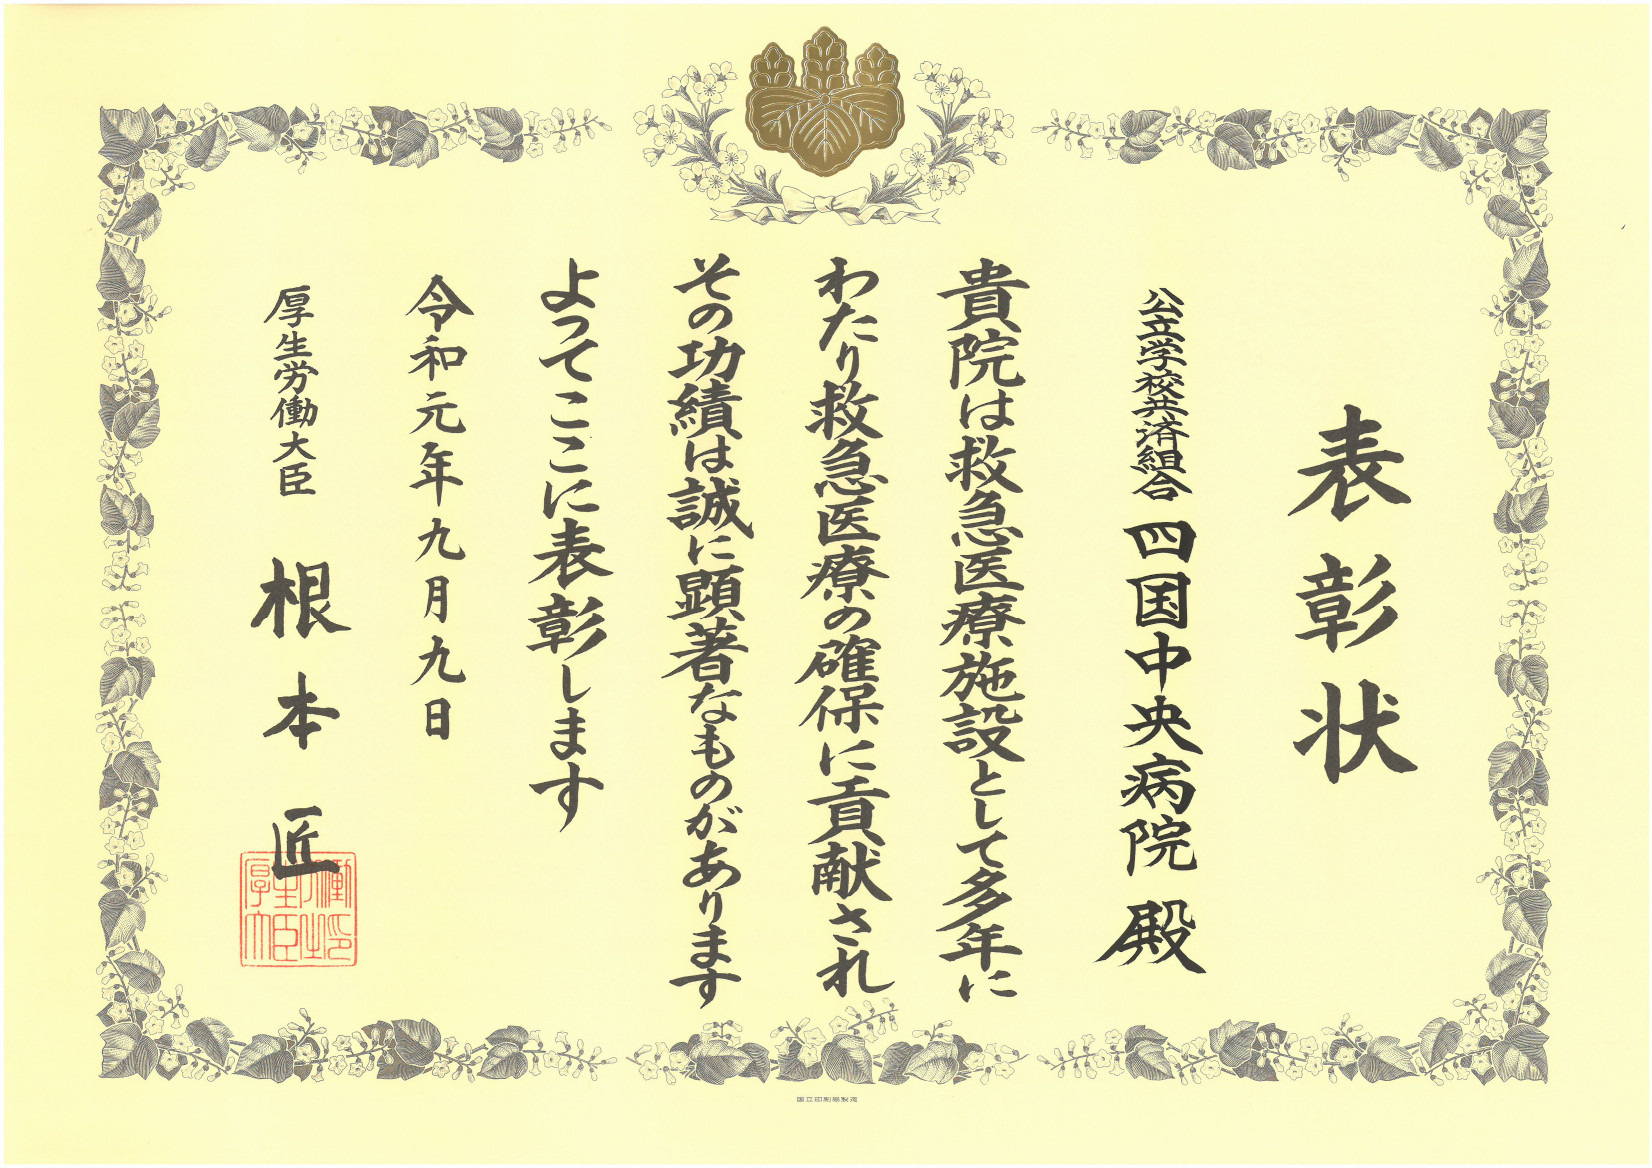 表彰状
公立学校共済組合 四国中央病院 殿
貴院は救急医療施設として多年に
わたり救急医療の確保に貢献され
その功績は誠に顕著なものがあります
よってここに表彰します
令和元年九月九日
厚生労働大臣 根本匠
国立印刷局製造